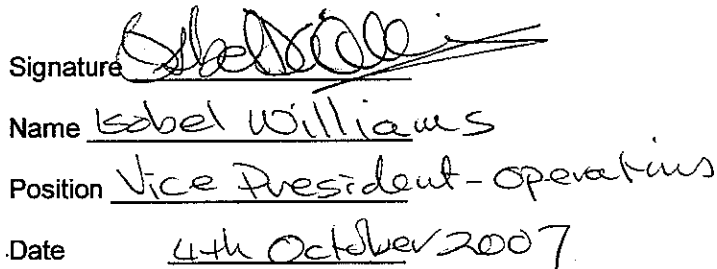 Signature Isobel Williams
Name Isobel Williams
Position Vice President - Operations
.Date 4th October 2007